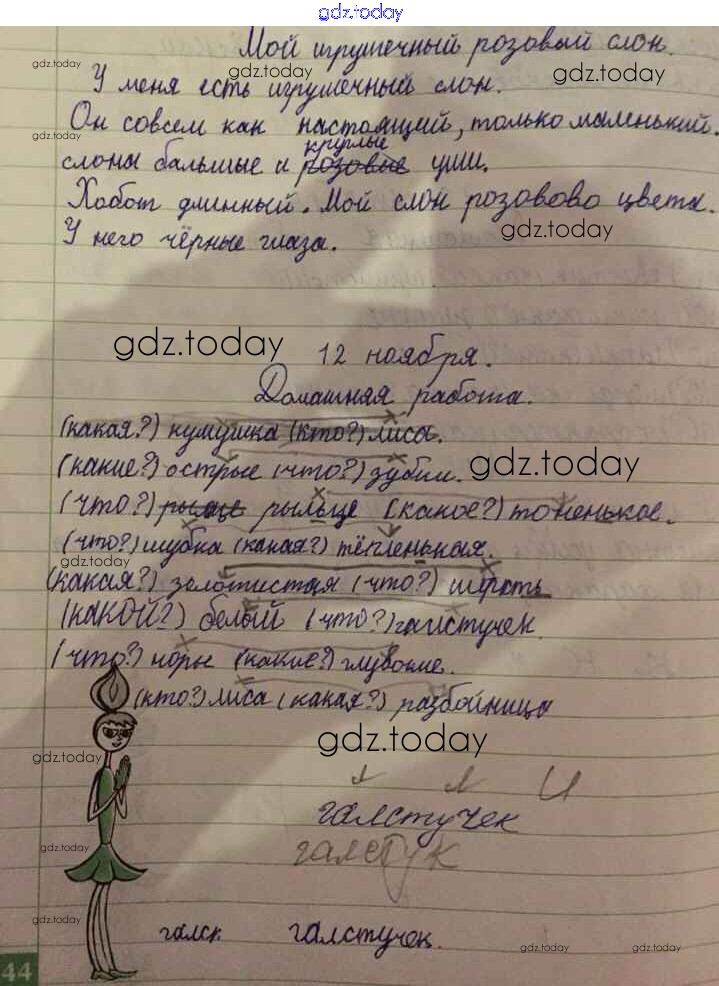 gdz.today
Мой игрушечный розовый слон.
gdz.today gdz.today gdz.today
У меня есть игрушечный слон.
Он совсем как настоящий, только маленький.
gdz.today
круглые
слона бальшые и розовые уши.
Хобот длинный. Мой слон розовово цвета.
gdz.today gdz.today
У него чёрные глаза.
gdz.today
12 ноября.
Домашняя работа.
(какая?) кумушка (кто?) лиса.
(какие?) острые (что?) зубки.
gdz.today gdz.today
(что?) рыльце (какое?) тоненькое.
(что?) шубка (какая?) тёпленькая.
gdz.today
(какая?) золотистая (что?) шерсть
(КАКОЙ?) белый (что?) галстучек
(что?) норы (какие?) глубокие.
(кто?) лиса (какая?) разбойница
gdz.today
gdz.today
галстучек
gdz.today
галстук
gdz.today
галск галстучек.
gdz.today gdz.today
44